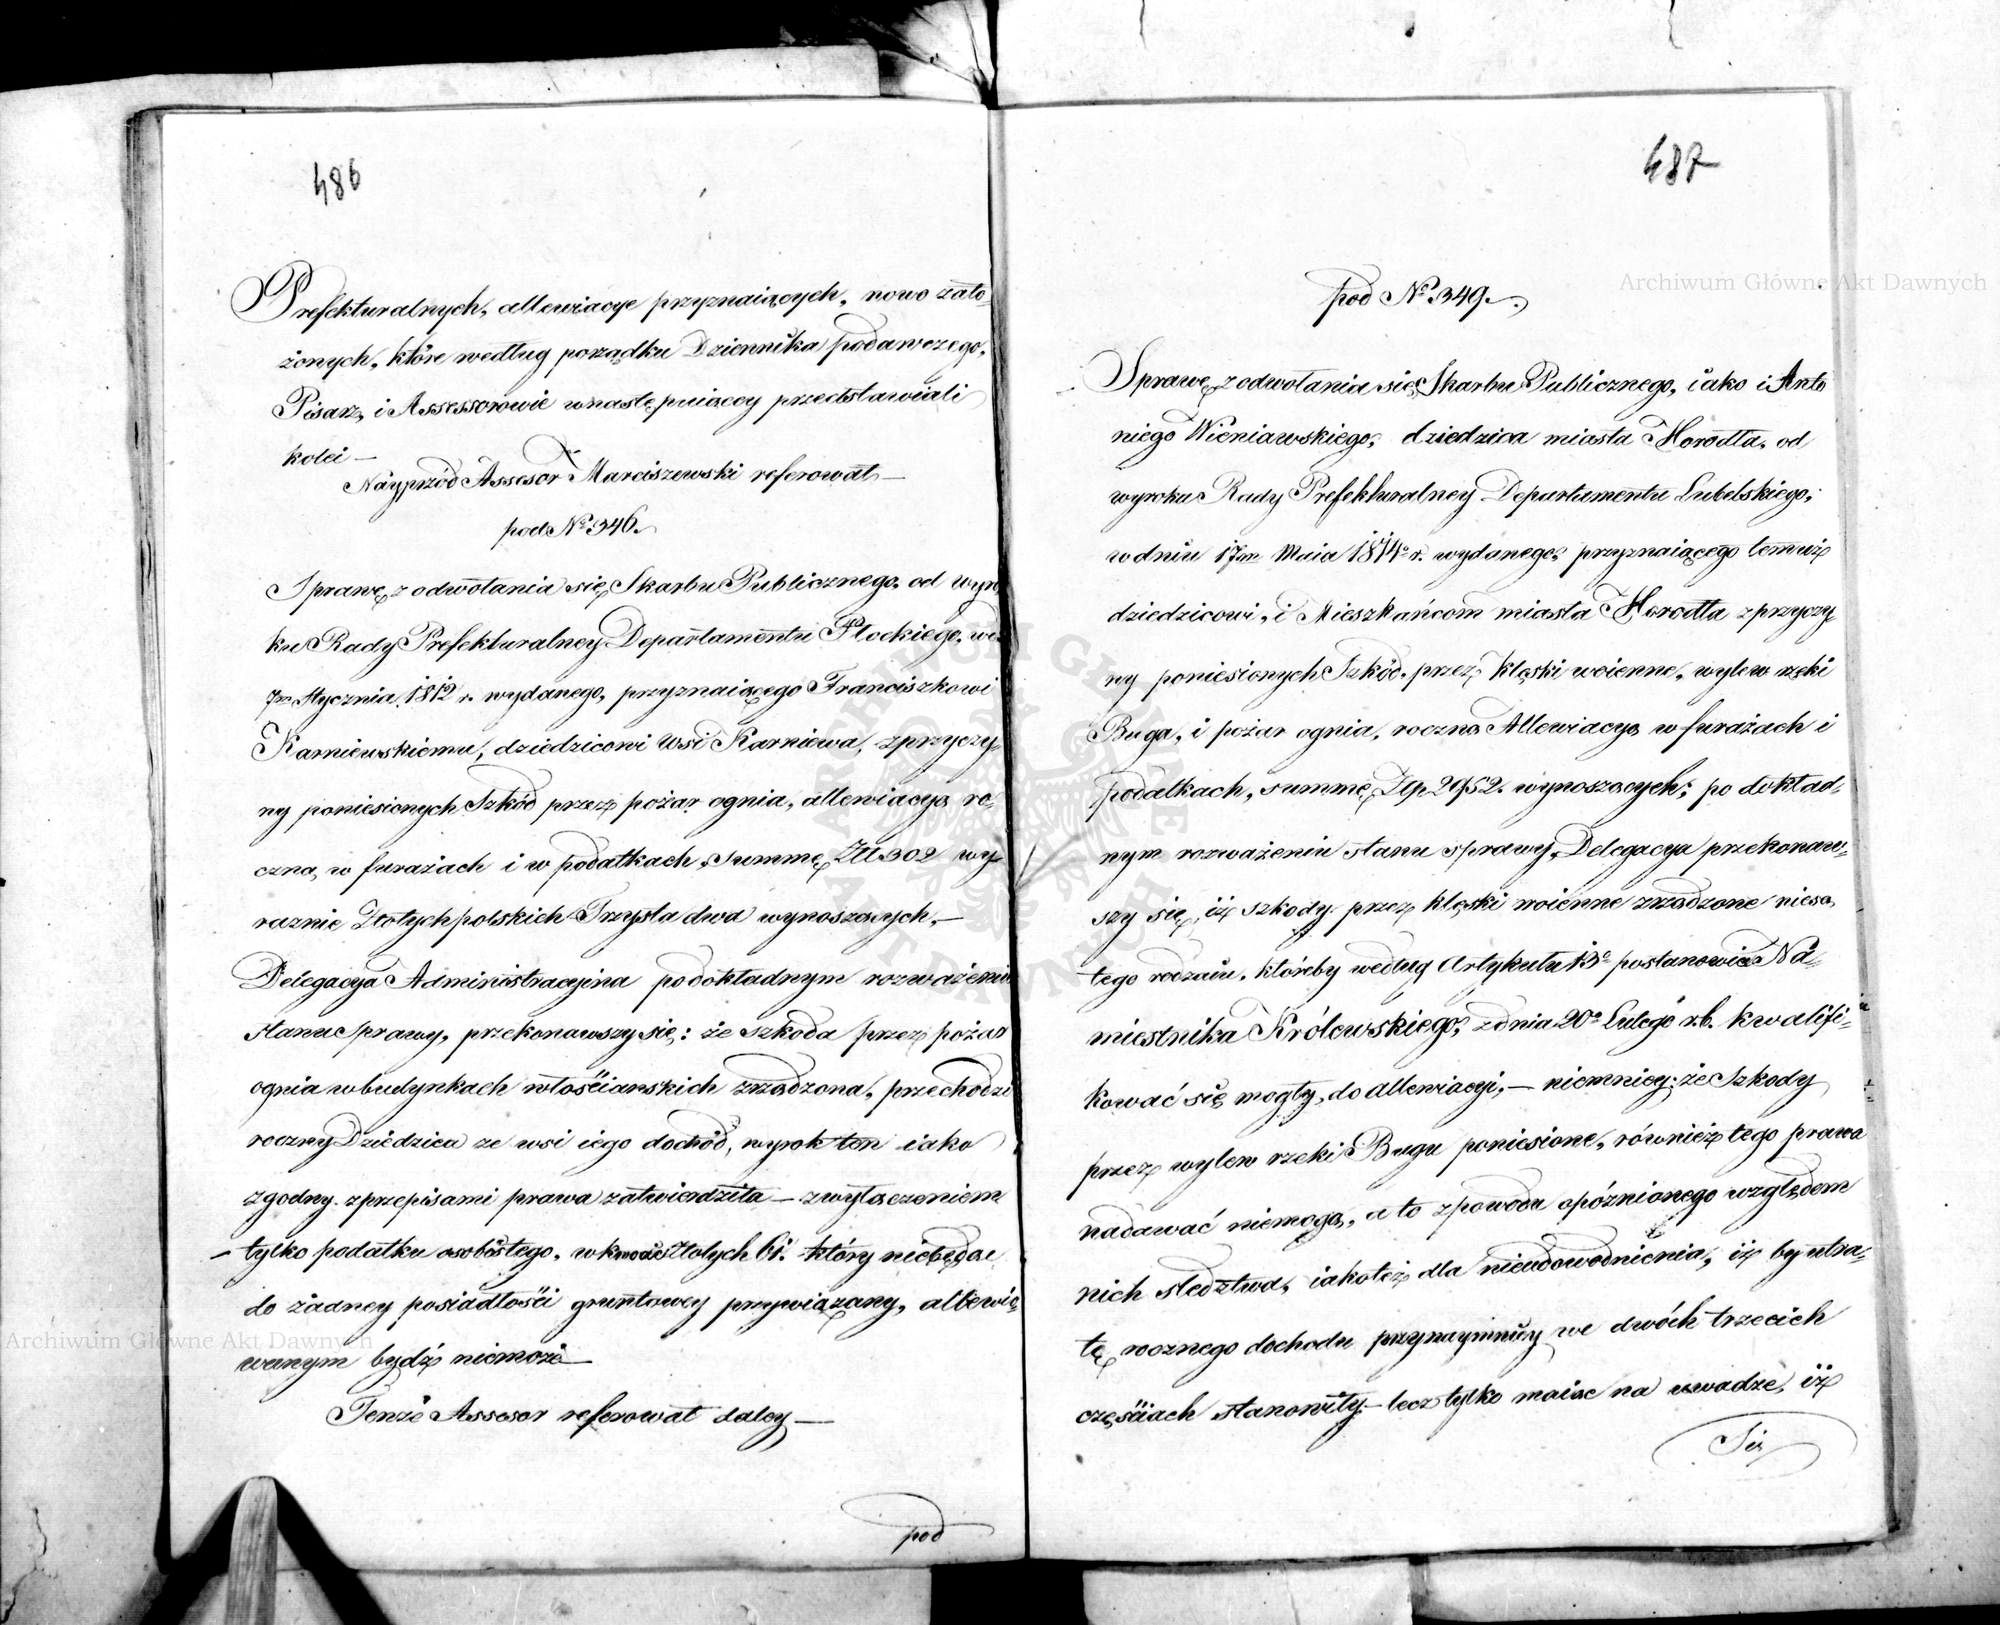 486
Prefekturalnych, allewiacye przyznaiących, nowo zało-
żonych, które według porządku Dziennika podawczego,
Pisarz, i Assessorowie wnastępuiącey przedstawiali
kolei —
Nayprzód Assesor Marciszewski referował —
pod No. 346.
Sprawę z odwołania się Skarbu Publicznego, od wyro
ku Rady Prefekturalney Departamentu Płockiego, w d.
7m Stycznia 1812 r. wydanego, przyznaiącego Franciszkowi
Karniewskiemu, dziedzicowi Wsi Karniewa, zprzyczy-
ny poniesionych Szkód przez pożar ognia, allewiacyą ro-
czną, w furażach i w podatkach, summę Zł 302 wy-
raznie Złotych polskich Trzysta dwa wynoszących, —
Delegacya Administracyina po dokładnym rozważeniu
stanu sprawy, przekonawszy się: że szkoda przez pożar
ognia w budynkach włościanskich zrządzona, przechodzi
roczny Dziedzica ze wsi iego dochód, wyrok ten iako
zgodny z przepisami prawa zatwierdziła — z wyłączeniem
— tylko podatku osobistego, w kwocie Złotych 61. który niebędąc
do żadney posiadłości gruntowey przywiązany, allewio-
wanym bydź niemoże —
Tenże Assesor referował daley —
pod
487
pod No. 349.
Sprawę z odwołania się Skarbu Publicznego, iako i Anto
niego Wieniawskiego, dziedzica miasta Horodła, od
wyroku Rady Prefekturalney Departamentu Lubelskiego,
w dniu 17m Maia 1814o r. wydanego, przyznaiącego temuż
dziedzicowi, i Mieszkańcom miasta Horodła z przyczy
ny poniesionych Szkód, przez klęski woienne, wylew rzeki
Buga, i pożar ognia, roczną Allewiacyą w furażach i
podatkach, summę Złp 2952. wynoszących; po dokład-
nym rozważeniu stanu sprawy, Delegacya przekonaw-
szy się, iż szkody przez klęski woienne zrządzone niesą
tego rodzaiu, któreby według Artykułu 13o postanowia Na-
miestnika Królewskiego, z dnia 20o Lutego r.b. kwalifi-
kować się mogły, do allewiacyi, — niemniey: że Szkody
przez wylew rzeki Bugu poniesione, również tego prawa
nadawać niemogą, a to z powodu opóźnionego względem
nich sledztwa, iakoteż dla nieudowodnienia, iż by utra-
tę rocznego dochodu przynaymniey we dwóch trzecich
częściach stanowiły — lecz tylko maiąc na uwadze, iż
Archiwum Główne Akt Dawnych
Archiwum Główne Akt Dawnych